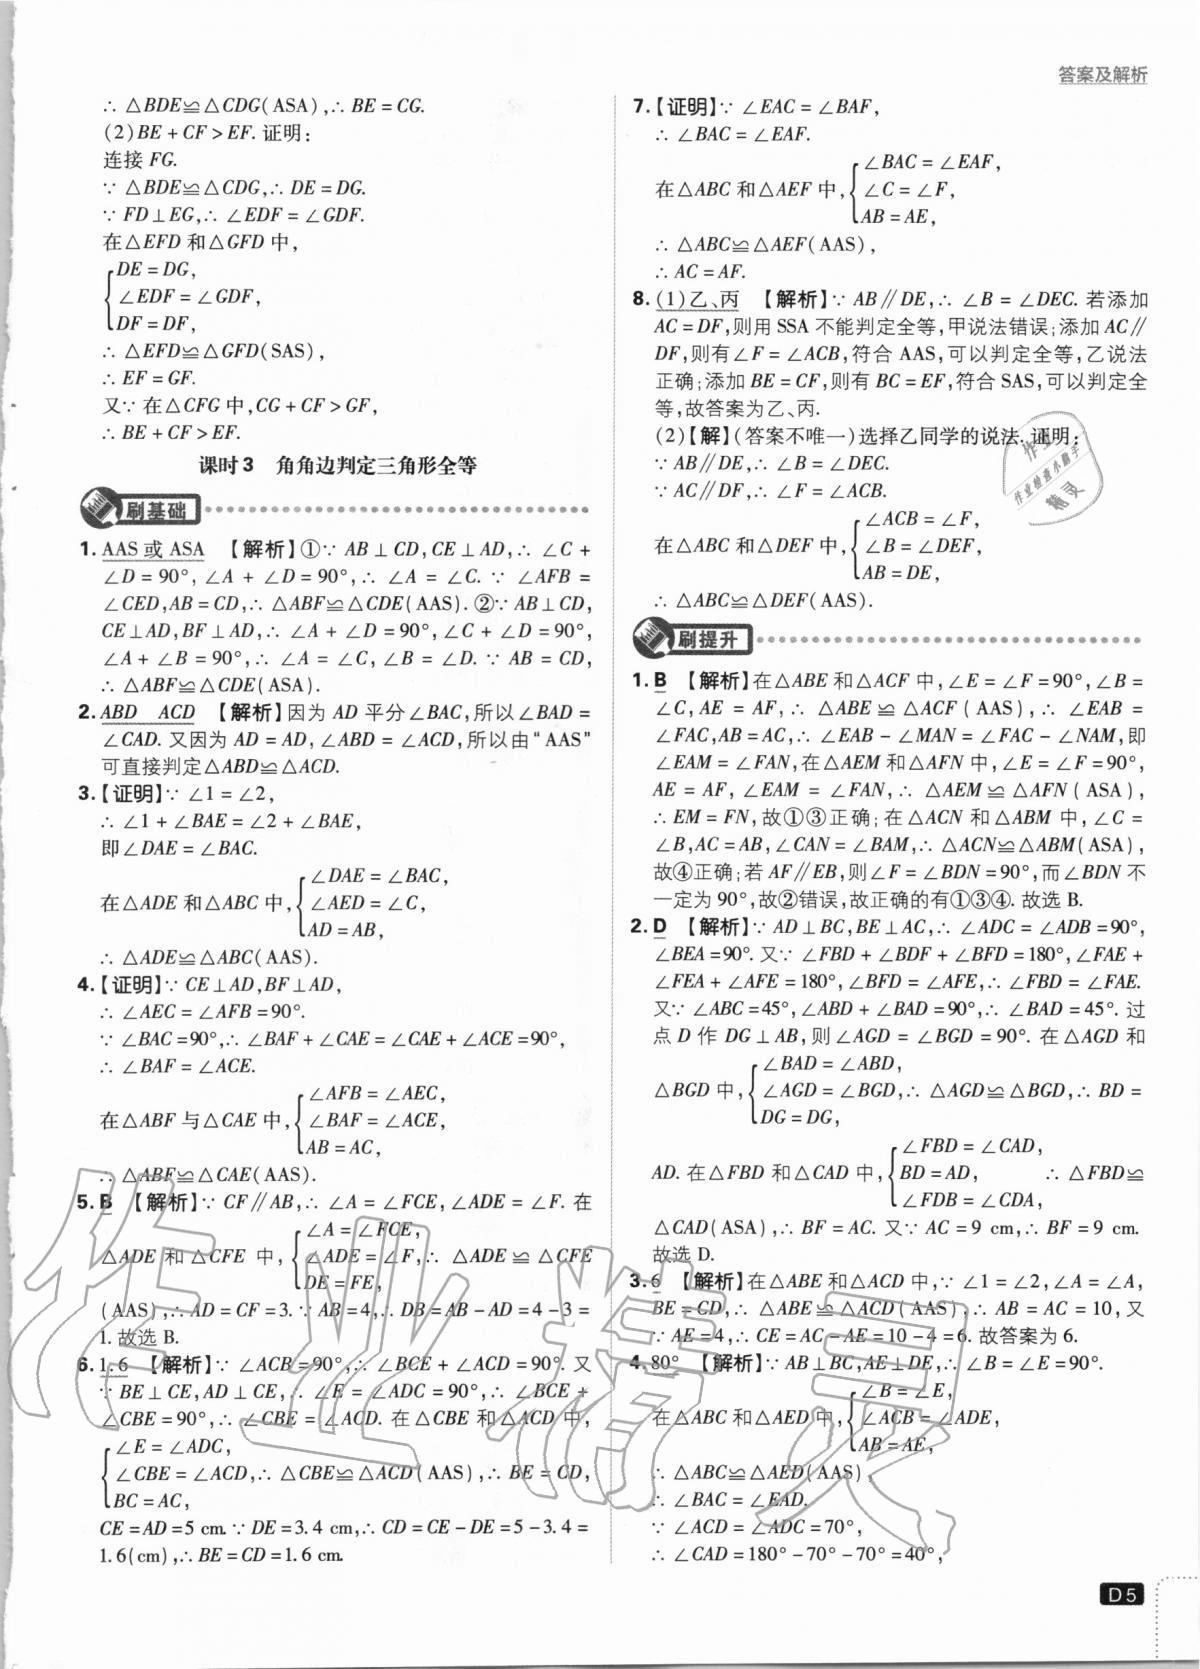 答案及解析
∴ △BDE≌△CDG(ASA),∴ BE=CG.
(2)BE+CF>EF.证明:
连接 FG.
∵ △BDE≌△CDG,∴ DE=DG.
∵ FD⊥EG,∴ ∠EDF=∠GDF.
在△EFD 和△GFD 中,
DE=DG,
∠EDF=∠GDF,
DF=DF,
∴ △EFD≌△GFD(SAS),
∴ EF=GF.
又∵ 在△CFG 中,CG+CF>GF,
∴ BE+CF>EF.
课时3 角角边判定三角形全等
刷基础
1. AAS 或 ASA 【解析】①∵ AB⊥CD,CE⊥AD,∴ ∠C+
∠D=90°,∠A+∠D=90°,∴ ∠A=∠C.∵ ∠AFB=
∠CED,AB=CD,∴ △ABF≌△CDE(AAS).②∵ AB⊥CD,
CE⊥AD,BF⊥AD,∴ ∠A+∠D=90°,∠C+∠D=90°,
∠A+∠B=90°,∴ ∠A=∠C,∠B=∠D.∵ AB=CD,
∴ △ABF≌△CDE(ASA).
2. ABD ACD 【解析】因为 AD 平分∠BAC,所以∠BAD=
∠CAD.又因为 AD=AD,∠ABD=∠ACD,所以由“AAS”
可直接判定△ABD≌△ACD.
3.【证明】∵ ∠1=∠2,
∴ ∠1+∠BAE=∠2+∠BAE,
即∠DAE=∠BAC.
在△ADE 和△ABC 中,
∠DAE=∠BAC,
∠AED=∠C,
AD=AB,
∴ △ADE≌△ABC(AAS).
4.【证明】∵ CE⊥AD,BF⊥AD,
∴ ∠AEC=∠AFB=90°.
∵ ∠BAC=90°,∴ ∠BAF+∠CAE=∠CAE+∠ACE=90°,
∴ ∠BAF=∠ACE.
在△ABF 与△CAE 中,
∠AFB=∠AEC,
∠BAF=∠ACE,
AB=AC,
∴ △ABF≌△CAE(AAS).
5. B 【解析】∵ CF∥AB,∴ ∠A=∠FCE,∠ADE=∠F.在
△ADE 和△CFE 中,
∠A=∠FCE,
∠ADE=∠F,∴ △ADE≌△CFE
DE=FE,
(AAS),∴ AD=CF=3.∵ AB=4,∴ DB=AB-AD=4-3=
1.故选 B.
6. 1.6 【解析】∵ ∠ACB=90°,∴ ∠BCE+∠ACD=90°.又
∵ BE⊥CE,AD⊥CE,∴ ∠E=∠ADC=90°,∴ ∠BCE+
∠CBE=90°,∴ ∠CBE=∠ACD.在△CBE 和△ACD 中,
∠E=∠ADC,
∠CBE=∠ACD,∴ △CBE≌△ACD(AAS),∴ BE=CD,
BC=AC,
CE=AD=5 cm.∵ DE=3.4 cm,∴ CD=CE-DE=5-3.4=
1.6(cm),∴ BE=CD=1.6 cm.
7.【证明】∵ ∠EAC=∠BAF,
∴ ∠BAC=∠EAF.
在△ABC 和△AEF 中,
∠BAC=∠EAF,
∠C=∠F,
AB=AE,
∴ △ABC≌△AEF(AAS),
∴ AC=AF.
8. (1)乙、丙 【解析】∵ AB∥DE,∴ ∠B=∠DEC.若添加
AC=DF,则用 SSA 不能判定全等,甲说法错误;添加 AC∥
DF,则有∠F=∠ACB,符合 AAS,可以判定全等,乙说法
正确;添加 BE=CF,则有 BC=EF,符合 SAS,可以判定全
等,故答案为乙、丙.
(2)【解】(答案不唯一)选择乙同学的说法.证明:
∵ AB∥DE,∴ ∠B=∠DEC.
∵ AC∥DF,∴ ∠F=∠ACB.
在△ABC 和△DEF 中,
∠ACB=∠F,
∠B=∠DEF,
AB=DE,
∴ △ABC≌△DEF(AAS).
刷提升
1. B 【解析】在△ABE 和△ACF 中,∠E=∠F=90°,∠B=
∠C,AE=AF,∴ △ABE≌△ACF(AAS),∴ ∠EAB=
∠FAC,AB=AC,∴ ∠EAB-∠MAN=∠FAC-∠NAM,即
∠EAM=∠FAN,在△AEM 和△AFN 中,∠E=∠F=90°,
AE=AF,∠EAM=∠FAN,∴ △AEM≌△AFN(ASA),
∴ EM=FN,故①③正确;在△ACN 和△ABM 中,∠C=
∠B,AC=AB,∠CAN=∠BAM,∴ △ACN≌△ABM(ASA),
故④正确;若 AF∥EB,则∠F=∠BDN=90°,而∠BDN 不
一定为 90°,故②错误,故正确的有①③④.故选 B.
2. D 【解析】∵ AD⊥BC,BE⊥AC,∴ ∠ADC=∠ADB=90°,
∠BEA=90°.又∵ ∠FBD+∠BDF+∠BFD=180°,∠FAE+
∠FEA+∠AFE=180°,∠BFD=∠AFE,∴ ∠FBD=∠FAE.
又∵ ∠ABC=45°,∠ABD+∠BAD=90°,∴ ∠BAD=45°.过
点 D 作 DG⊥AB,则∠AGD=∠BGD=90°.在△AGD 和
△BGD 中,
∠BAD=∠ABD,
∠AGD=∠BGD,∴ △AGD≌△BGD,∴ BD=
DG=DG,
AD.在△FBD 和△CAD 中,
∠FBD=∠CAD,
BD=AD, ∴ △FBD≌
∠FDB=∠CDA,
△CAD(ASA),∴ BF=AC.又∵ AC=9 cm,∴ BF=9 cm.
故选 D.
3. 6 【解析】在△ABE 和△ACD 中,∵ ∠1=∠2,∠A=∠A,
BE=CD,∴ △ABE≌△ACD(AAS),∴ AB=AC=10,又
∵ AE=4,∴ CE=AC-AE=10-4=6.故答案为 6.
4. 80° 【解析】∵ AB⊥BC,AE⊥DE,∴ ∠B=∠E=90°.
在△ABC 和△AED 中,
∠B=∠E,
∠ACB=∠ADE,
AB=AE,
∴ △ABC≌△AED(AAS),
∴ ∠BAC=∠EAD.
∵ ∠ACD=∠ADC=70°,
∴ ∠CAD=180°-70°-70°=40°,
作业
作业检查小助手
精灵
作业精灵
D5